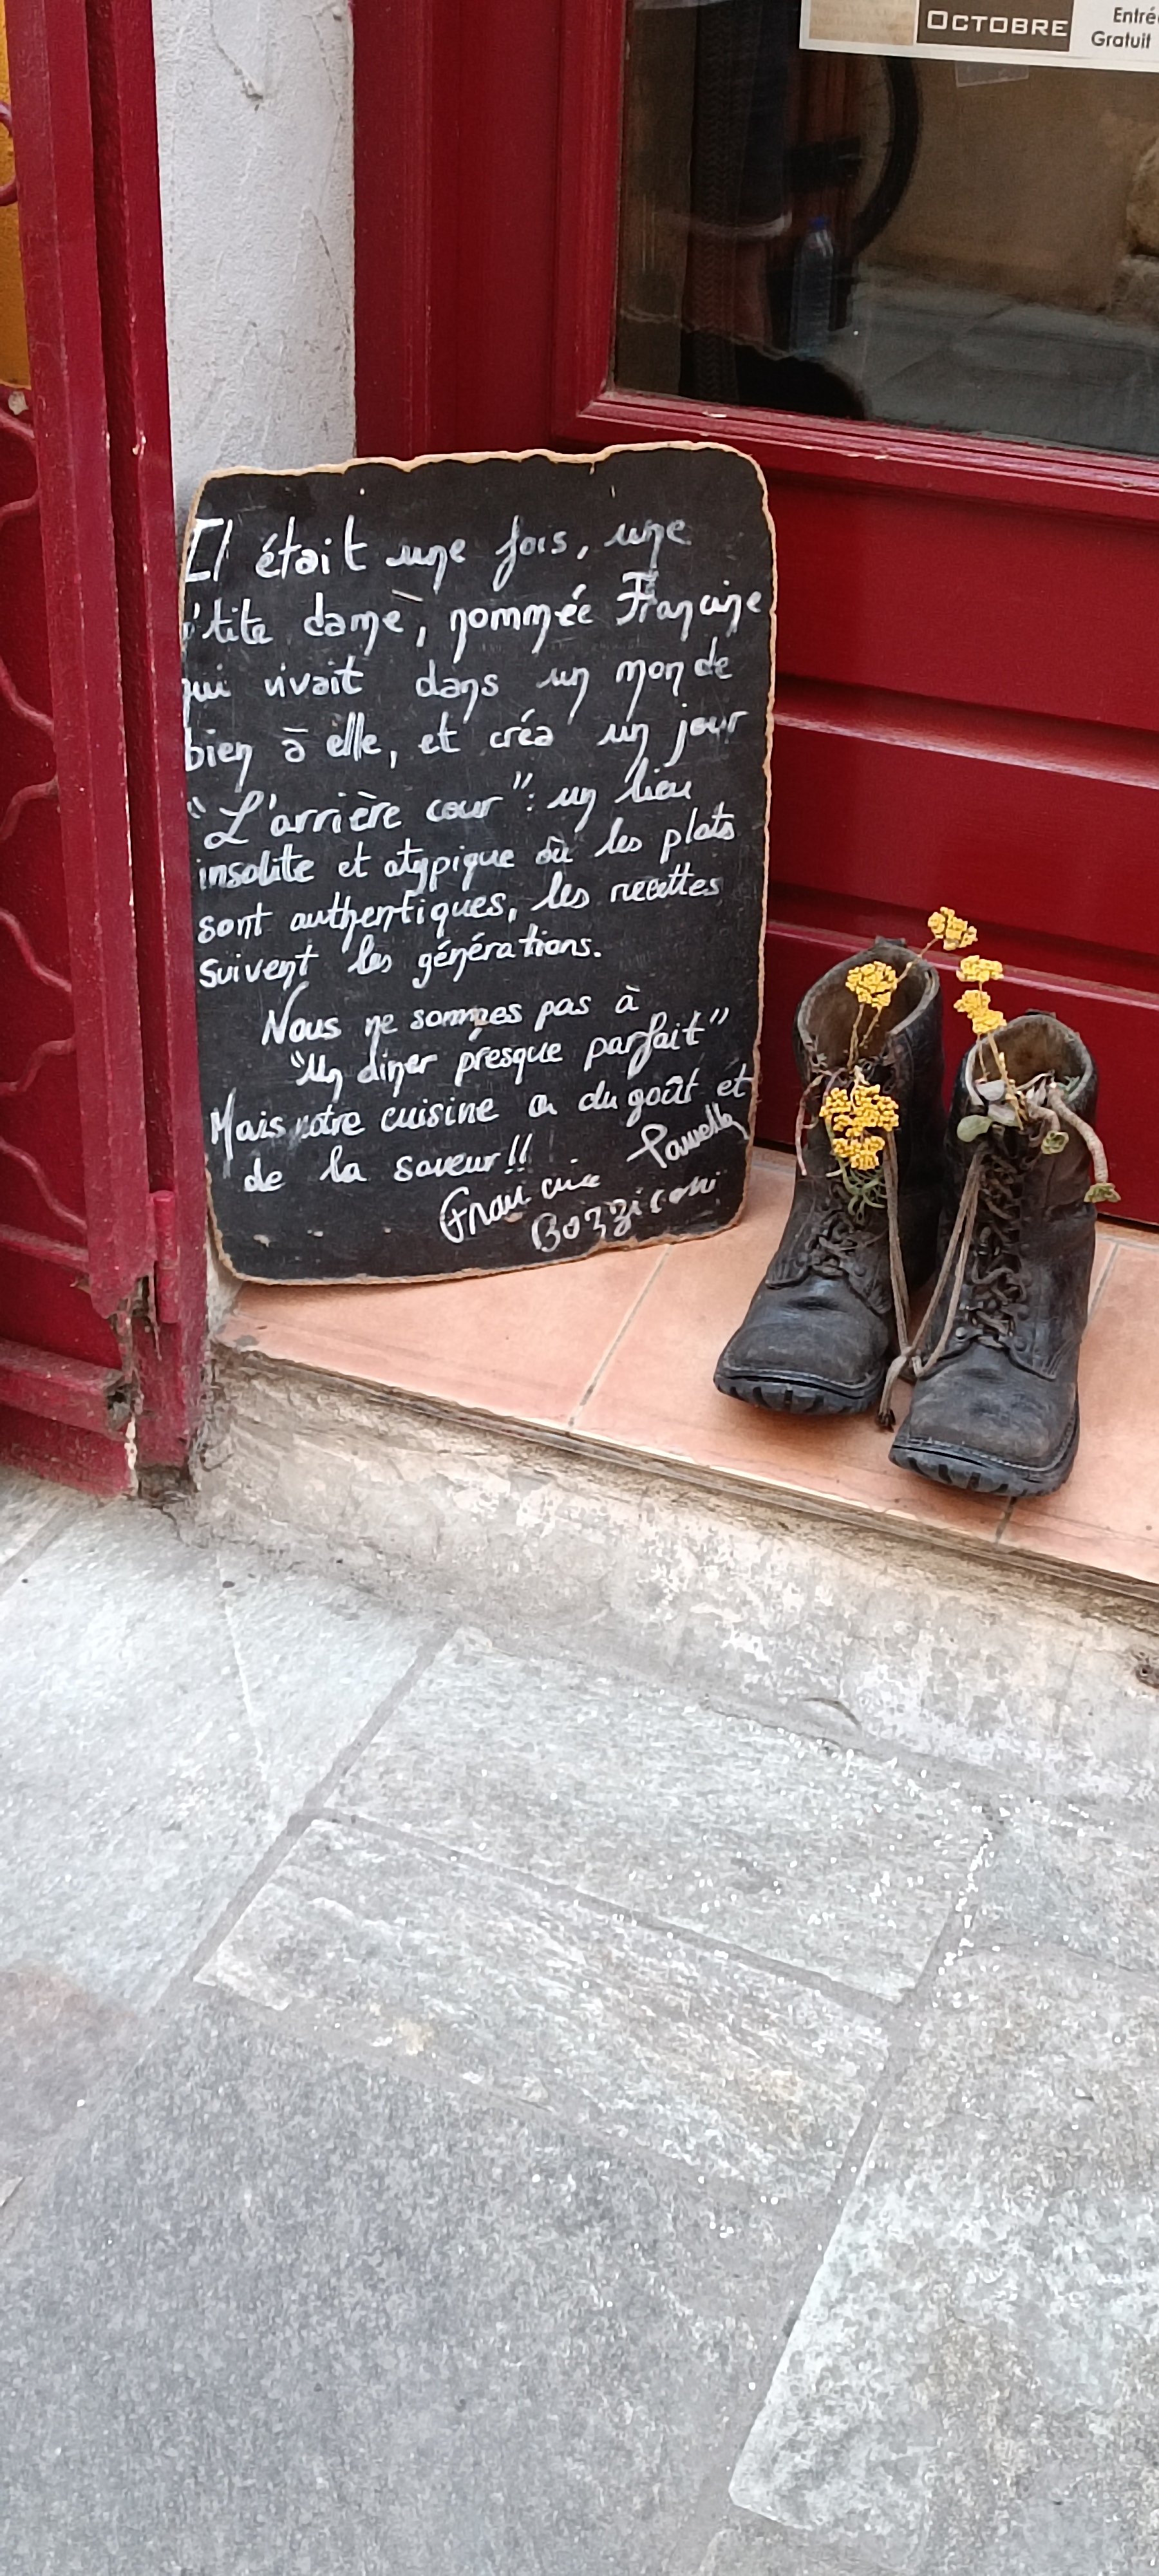 OCTOBRE
Entré
Gratuit
Il était une fois, une
p'tite dame, nommée Francine
qui vivait dans un monde
bien à elle, et créa un jour
"L'arrière cour": un lieu
insolite et atypique où les plats
sont authentiques, les recettes
suivent les générations.
Nous ne sommes pas à
"Un diner presque parfait"
Mais notre cuisine a du goût et
de la saveur!!
Francine
Bozziconi